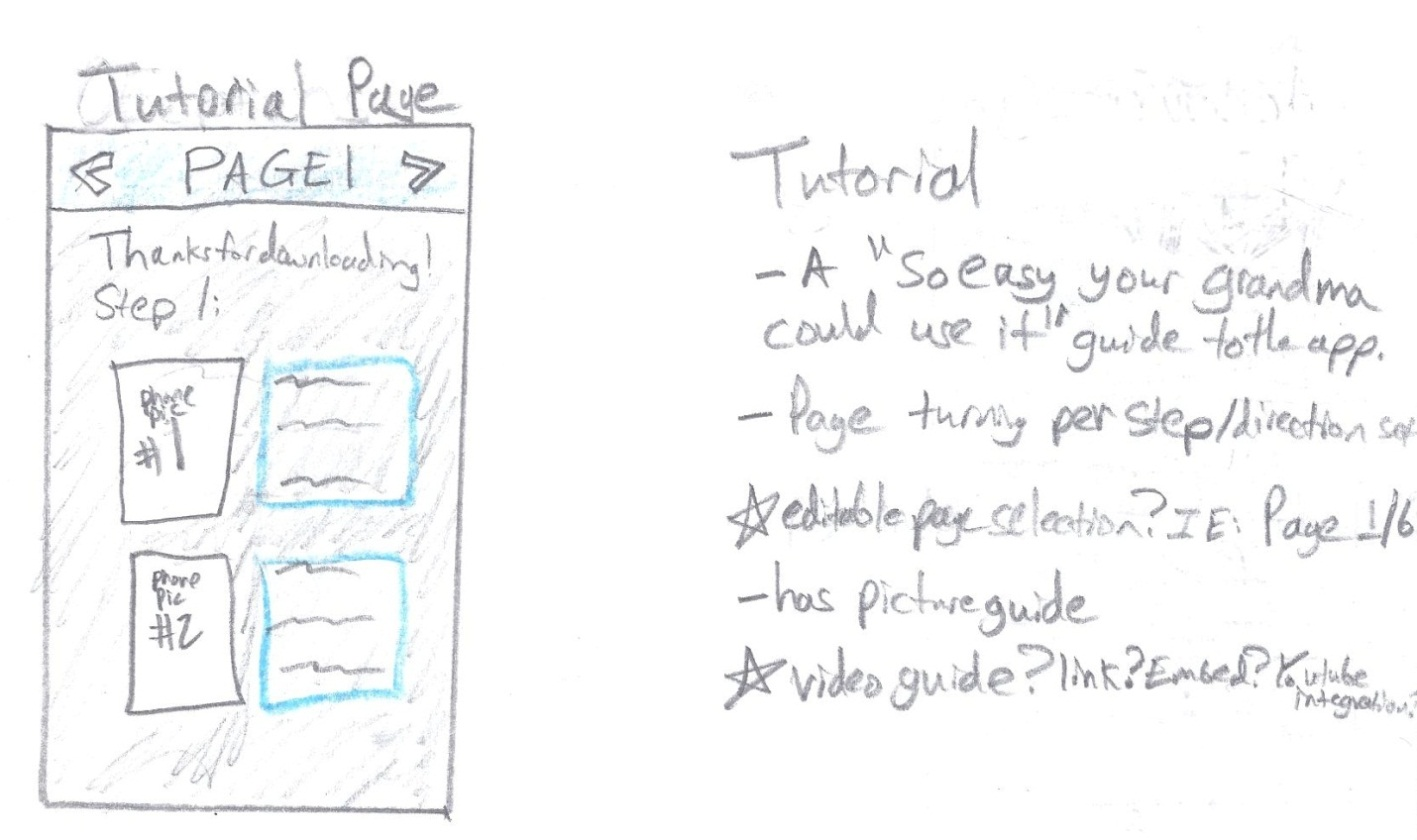 Tutorial Page
PAGE 1
Thanks for downloading!
Step 1:
phone
pic
#1
phone
pic
#2
Tutorial
- A "So easy your grandma
could use it" guide to the app.
- Page turning per step/direction
☆ editable page selection? IE: Page 1/6
- has picture guide
☆ video guide? link? Embed? Youtube
integration?